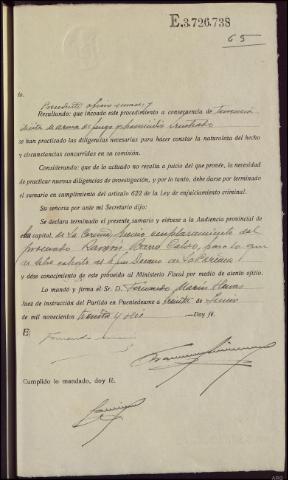 E.3.726.738
65
to.
Precedente oficio
Resultando: que incoado este procedimiento a consecuencia de tenencia
ilícita de arma de fuego y homicidio frustrado
se han practicado las diligencias necesarias para hacer constar la naturaleza del hecho
y circunstancias concurridas en su comisión.
Considerando: que de lo actuado no resalta a juicio del que proveé, la necesidad
de practicar nuevas diligencias de investigación, y por lo tanto, debe darse por terminado
el sumario en cumplimiento del artículo 622 de la Ley de enjuiciamiento criminal.
Su señoría por ante mi Secretario dijo:
Se declara terminado el presente sumario y elévase a la Audiencia provincial de
la capital, de La Coruña previo emplazamiento del
procesado Ramón
y dése conocimiento de este proveído al Ministerio Fiscal por medio de atento oficio.
Lo mandó y firma el Sr. D. Fernando
Juez de instrucción del Partido en Puentedeume a treinta de Junio
de mil novecientos treinta y seis Doy fé.
E/
Fernando
Cumplido lo mandado, doy fé.